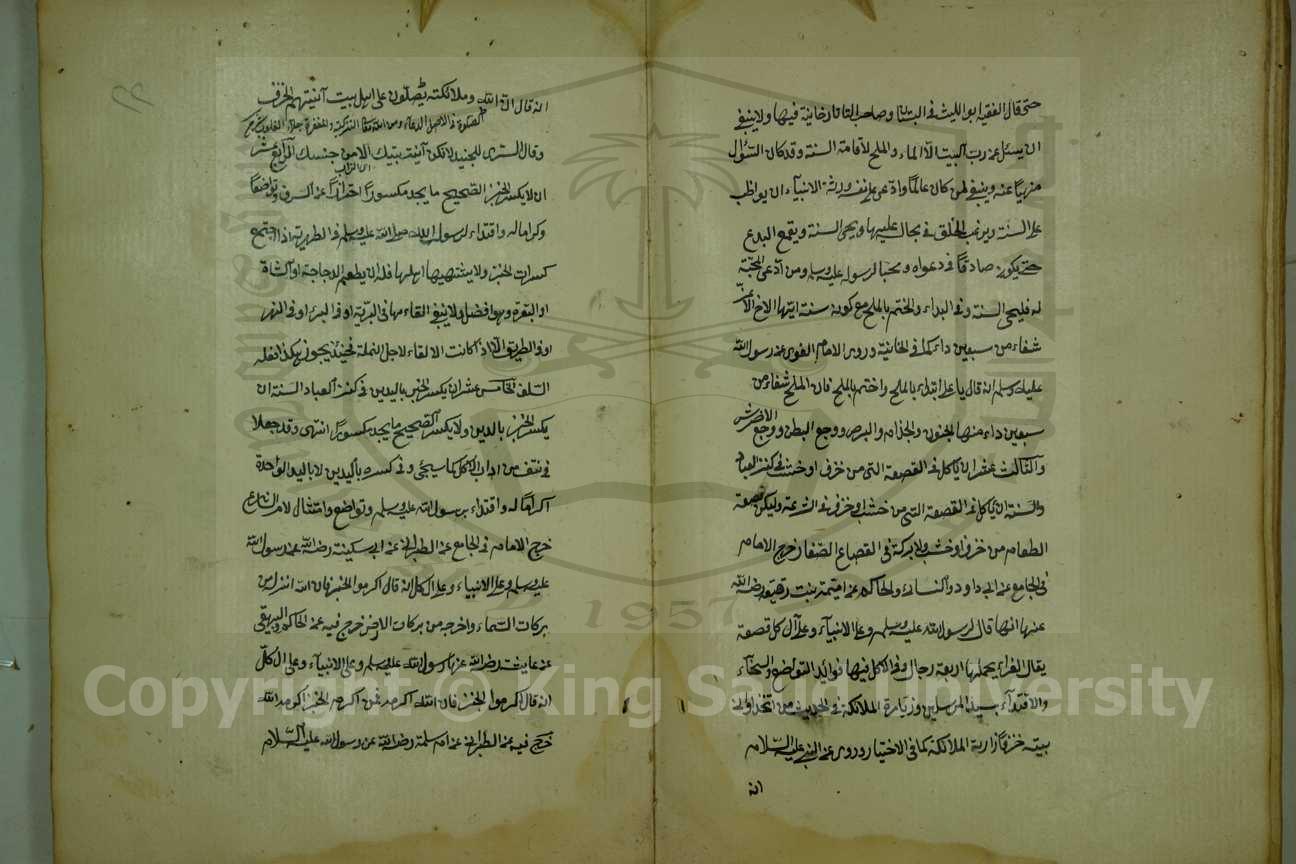 حتى قال الفقيه ابو الليث فى البستان وصاحب التاتارخانية فيها ولا ينبغى
ان يسئل عن رب البيت الا الماء والملح لاقامة السنة وقد كان السؤل
منهياً عنه وينبغى لمن كان عالماً وادعى على نفسه ورثة الانبياء ان يواظب
على السنة ويرغب الخلق فى بحال عليها ويحيى السنة ويقمع البدع
حتى يكون صادقاً فى دعواه ومحبا لرسول عليه وسلم ومن ادعى المحبة
له فليحى السنة وفى البداء والختم بالملح مع كونه سنة ايتها الاخ الاعز
شفاء من سبعين داء كما فى الخانية وروى الامام الغوى عن رسول الله
عليه وسلم انه قال يا على ابتداء بالملح واختم بالملح فان الملح شفاء من
سبعين داء منها الجنون والجذام والبرص ووجع البطن ووجع الاضراس
والثالث عشر ان ياكل فى القصعة التى من خزف او خشب فى كنز العباد
والسنة ان ياكل فى القصعة التى من خشب وخزف فى الشرعة وليكن قصعة
الطعام من خزف او خشب ولا بركة فى القصاع الصغار خرج الامام
فى الجامع عن ابى داود والنساء والحاكم عن اميمة بنت رقيقة رضى الله
عنها انها قال لرسول الله عليه وسلم وعلى الانبياء وعلى آل كل قصعة
يقال الغراء يحملها اربعة رجال وفى الاكل فيها فوائد التواضع والسخاء
والاقتداء بسيد المرسلين وزيارة الملائكة فى الحديث من اتخذ اوانى
بيته خزفاً زارية الملائكة كما فى الاختيار وروى عن النبى عليه السلام
انه
٢٢
انه قال ان الله وملائكته يصلون على اهل بيت آنيتهم الخزف
وقال السترى للجنيد لا تكن آنية بيتك الا من جنسك الرابع عشر
ان لا يكسر الخبز الصحيح ما يجد مكسوراً احترازاً عن السرف وتواضعاً
وكراما له واقتداء لرسول الله صلى الله عليه وسلم فى الطهرية اذا اجتمع
كسرات الخبز ولا يشتهيها اهلها فله ان يطعم الدجاجة او الشاة
او البقرة وهو افضل ولا ينبغى القاء مها فى البرية او فى البئر او فى النهر
او فى الطريق الا اذا كانت الالقاء لاجل النملة فحينئذ يجوز هكذا فعله
السلف الخامس عشر ان يكسر الخبز باليدين فى كنز العباد السنة ان
يكسر الخبز باليدين ولا يكسر الصحيح ما يجد مكسوراً انتهى وقد جعلا
فى نتف من اداب الاكل كما سيجئ وفى كسره باليدين لا باليد الواحدة
اكراماً له واقتداء برسول الله عليه وسلم وتواضع وامتثال لامر الشارع
خرج الامام فى الجامع عن الطبرانى عن ابى سكينة رضى الله عن رسول الله
عليه وسلم وعلى الانبياء وعلى آل كل انه قال اكرموا الخبز فان الله انزل من
بركات السماء واخرجه من بركات الارض خرج فيه عن الحاكم والبيهقى
عن عايشة رضى الله عنها رسول الله عليه وسلم وعلى الانبياء وعلى ال كل
انه قال اكرموا الخبز فان الله اكرمه فمن اكرم الخبز اكرمه الله
خرج فيه عن الطبرانى عن ام سلمة رضى الله عن رسول الله عليه السلام